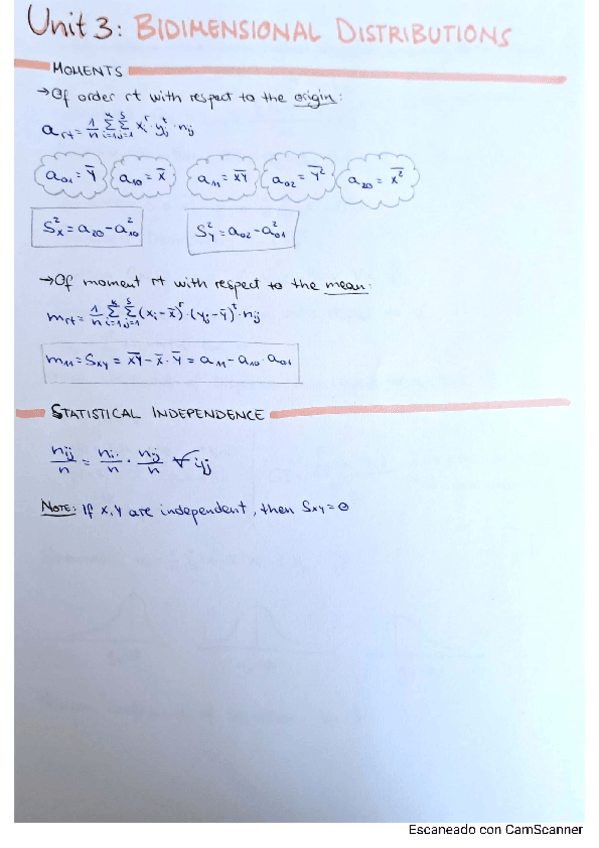 Unit 3: BIDIMENSIONAL DISTRIBUTIONS
MOMENTS
→ Of order rt with respect to the origin:
a_rt = 1/n Σ_{i=1}^{k} Σ_{j=1}^{s} x_i^r · y_j^t · n_ij
a_01 = Y̅ a_10 = X̅ a_11 = X̅Y̅ a_02 = Y̅² a_20 = X̅²
S²_x = a_20 - a²_10 S²_Y = a_02 - a²_01
→ Of moment rt with respect to the mean:
m_rt = 1/n Σ_{i=1}^{k} Σ_{j=1}^{s} (x_i - x̅)^r · (y_j - y̅)^t · n_ij
m_11 = S_xy = X̅Y̅ - X̅ · Y̅ = a_11 - a_10 · a_01
STATISTICAL INDEPENDENCE
n_ij/n = n_i./n · n_ij/n ∀ i,j
NOTE: If X,Y are independent, then S_XY = 0
Escaneado con CamScanner